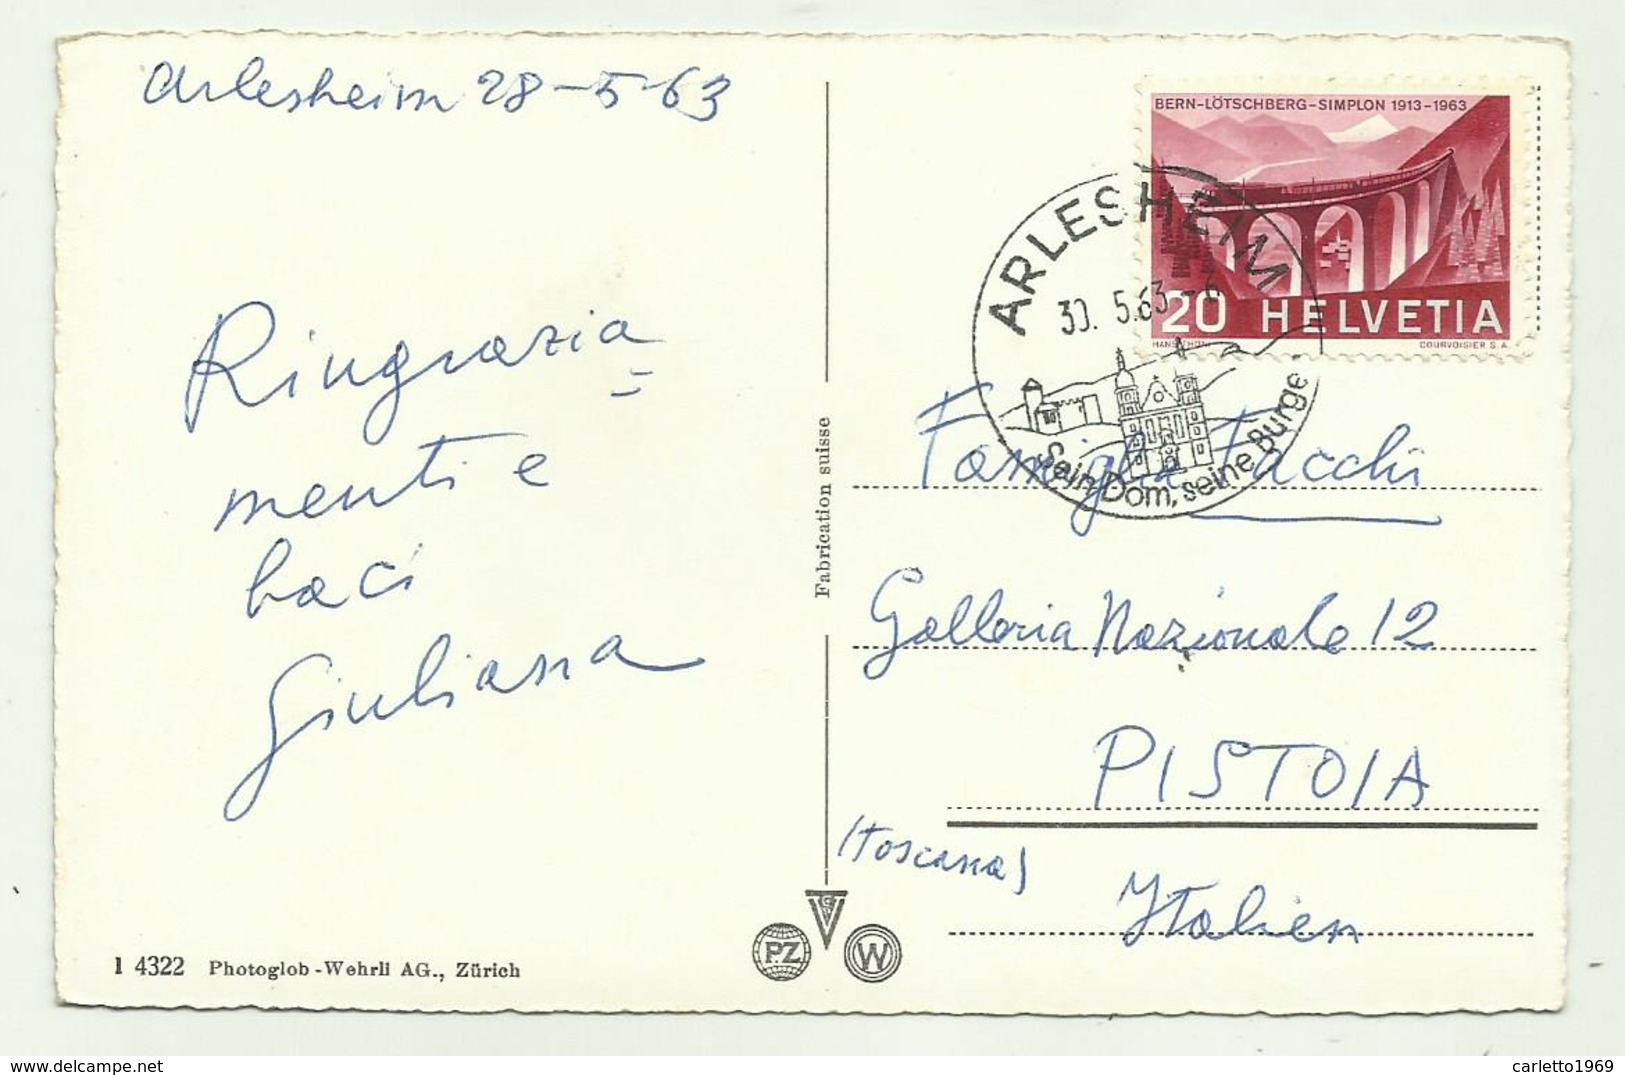 Arlesheim 28-5-63
Ringrazia
menti e
baci
Giuliana
1 4322 Photoglob-Wehrli AG., Zürich
Fabrication suisse
PZ
W
BERN-LÖTSCHBERG-SIMPLON 1913-1963
20 HELVETIA
COURVOISIER S.A.
ARLESHEIM
30. 5.63
Sein Dom, seine Burge
Famiglia Facchi
Galleria Nazionale 12
PISTOIA
(Toscana)
Italien
delcampe.net
carletto1969